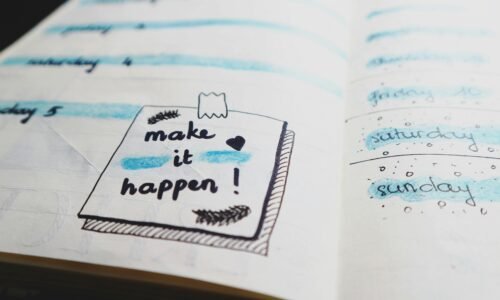 saturday 4
day 5
make
it
happen !
friday 10
saturday
sunday